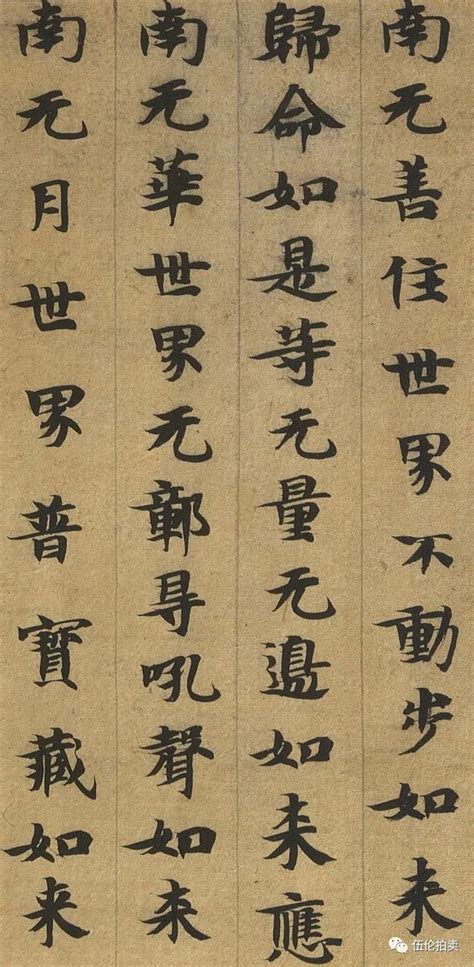 南无善住世界不動步如来
歸命如是等无量无邉如来應
南无華世界无鄣㝵吼聲如来
南无月世界普寳藏如来
伍伦拍卖